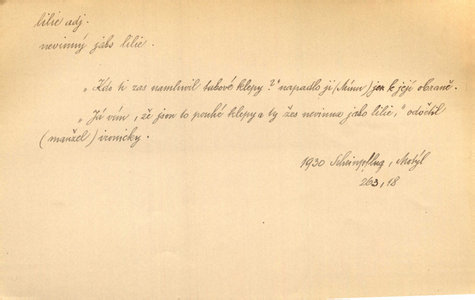 lilie adj.
nevinný jako lilie.
„Kdo ti zas namluvil takové klepy?" napadlo ji (Mimi) jen k její obraně.
„Já vím, že jsou to pouhé klepy a ty žes nevinna jako lilie," odvětil
(manžel) ironicky.
1930 Scheinpflug, Motýl
263, 18